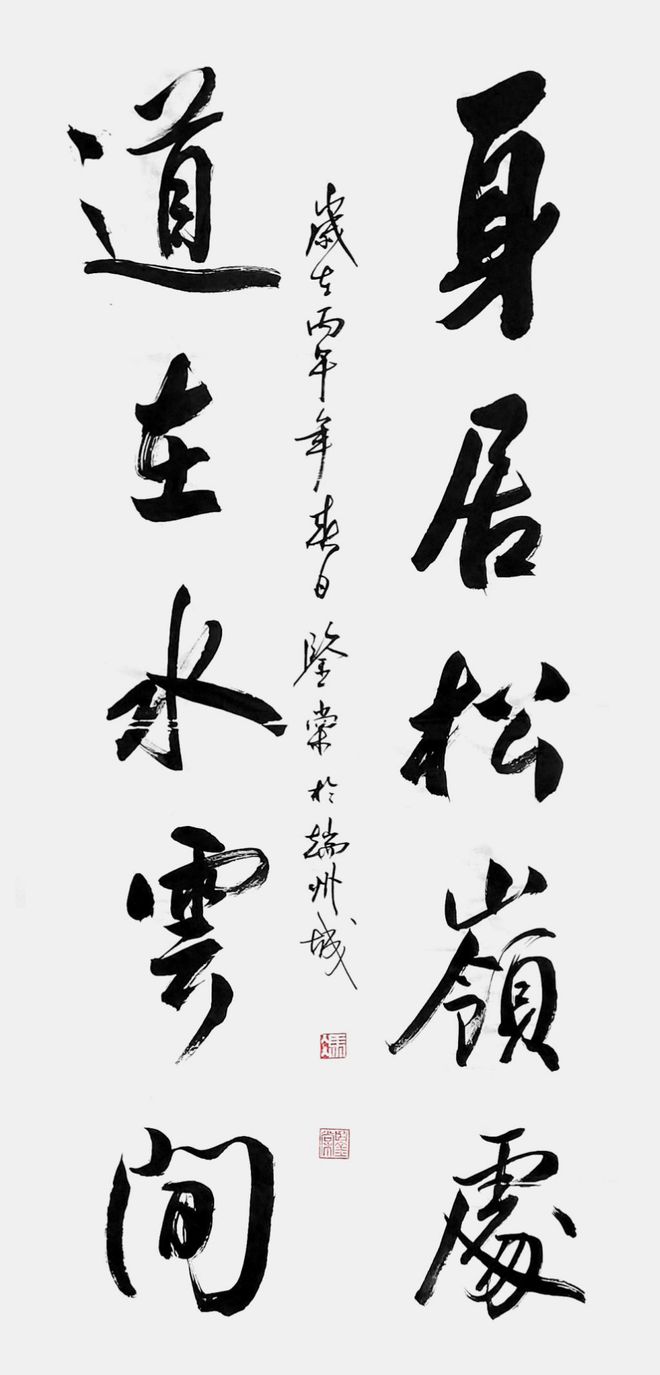 身居松嶺處
道在水雲間
歲在丙午年春日鑒棠於端州城